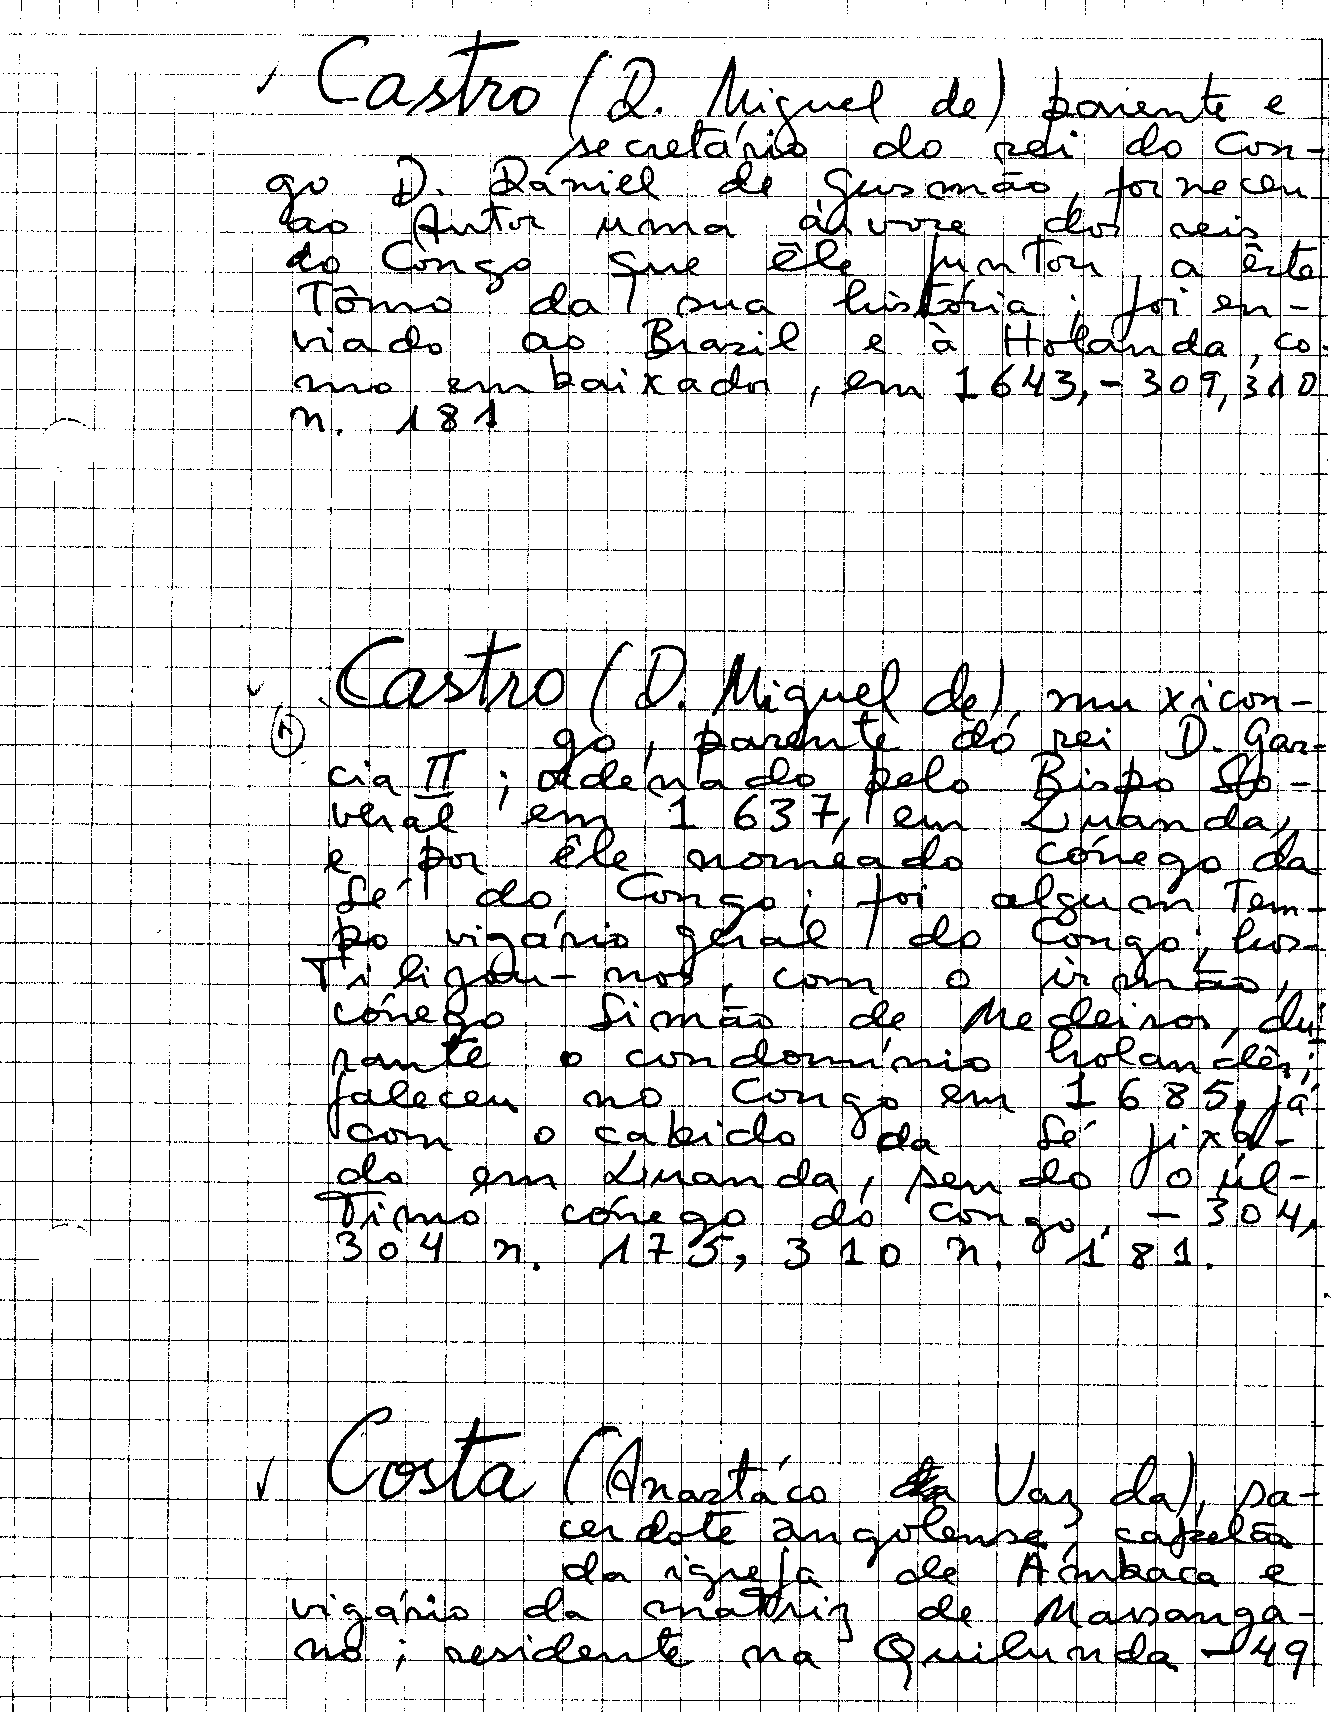 ✓ Castro (D. Miguel de) parente e
secretário do rei do Con-
go D. Daniel de Gusmão, forneceu
ao Autor uma árvore dos reis
do Congo que êle juntou a êste
Tômo da sua história; foi en-
viado ao Brazil e à Holanda, co-
mo embaixador, em 1643, - 309, 310
n. 181
✓ Castro (D. Miguel de), muxicon-
go, parente do rei D. Gar-
cia II; ordenado pelo Bispo So-
veral em 1637, em Luanda,
e por êle nomeado cónego da
Sé do Congo; foi algum Tem-
po vigário geral do Congo; hos-
Tiligou-nos, com o irmão,
cónego Simão de Medeiros, du-
rante o condomínio holandês;
faleceu no Congo em 1685, já
com o cabido da Sé fixa-
do em Luanda, sendo o úl-
Timo cónego do Congo, - 304,
304 n. 175, 310 n. 181.
✓ Costa (Anastáco da Vaz da), sa-
cerdote angolense, capelão
da igreja de Ambaca e
vigário da matriz de Massanga-
no; residente na Quilunda - 49